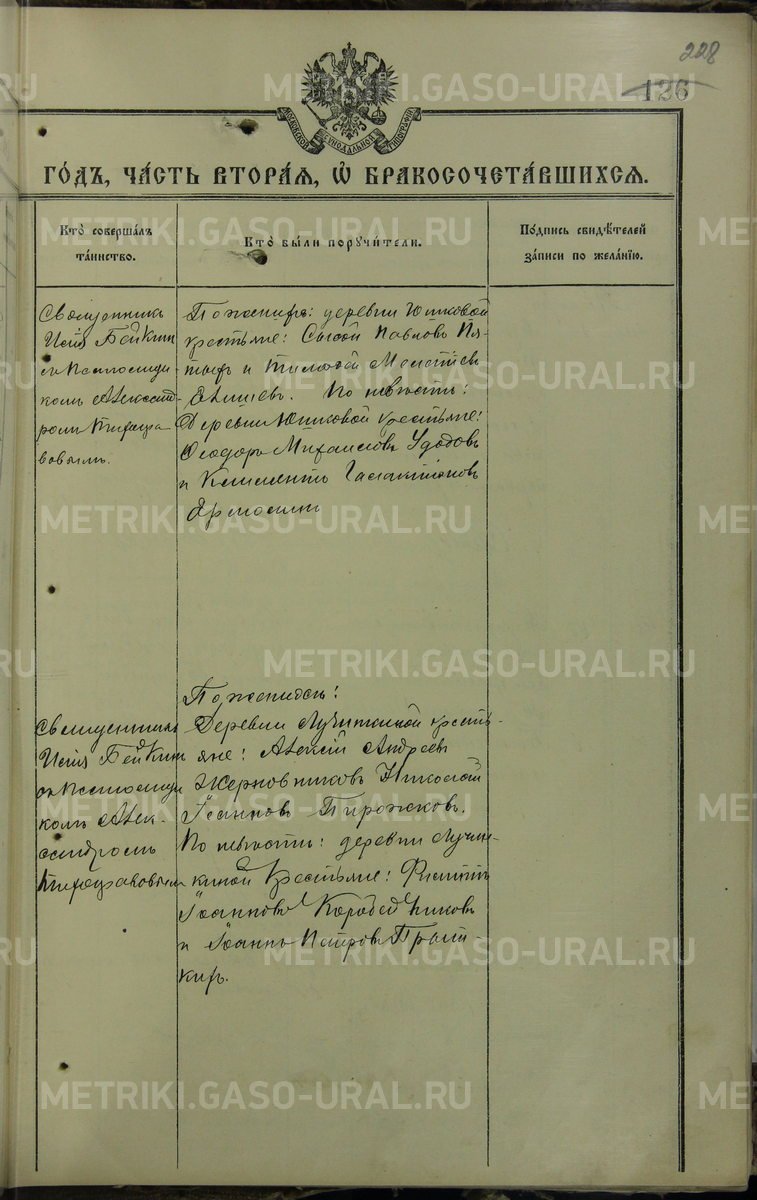 228
126
МОСКОВСКОЙ СѴНОДАЛЬНОЙ ТИПОГРАФІИ
ГО́ДЪ, ЧА́СТЬ ВТОРА́Я, Ѡ БРАКОСОЧЕТА́ВШИХСЯ.
Кто̀ соверша́лъ
та́инство.
Кто̀ бы́ли поручи́тели.
По́дпись свидѣ́телей
за́писи по жела́нію.
Священникъ
Исія Бейкин
съ псаломщи-
комъ Александ-
ромъ
По женихѣ: деревни Юшковой
крестьяне: Сысой Павловъ
и Тимофей Мелетіевъ
По невѣстѣ:
Деревни Юшковой крестьяне:
Ѳеодоръ Михаиловъ Удодовъ
и Климентъ Галактіоновъ
Священникъ
Исія Бейкин
съ псаломщи
комъ Алек-
сандромъ
По женихѣ:
Деревни Лучинкиной кресть-
яне: Алексій Андреевъ
Жерновниковъ Николай
Іоанновъ Пирожковъ.
По невѣстѣ: деревни Лучин-
киной крестьяне: Филиппъ
Іоанновъ Коробейниковъ
и Іоаннъ Петровъ
METRIKI.GASO-URAL.RU